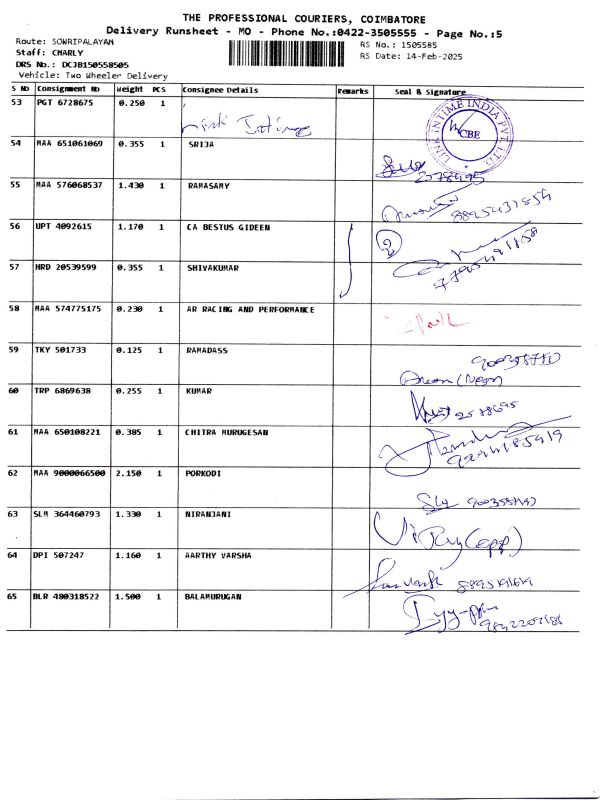 THE PROFESSIONAL COURIERS, COIMBATORE
Delivery Runsheet - MO - Phone No.:0422-3505555 - Page No.:5
Route: SOWRIPALAYAM
RS No.: 1505585
Staff: CHARLY
RS Date: 14-Feb-2025
DRS No.: DCJB150558505
Vehicle: Two Wheeler Delivery
S No Consignment No Weight PCS Consignee Details Remarks Seal & Signature
53 PGT 6728675 0.250 1
Link Intime
LINK INTIME INDIA PVT. LTD.
CBE
54 MAA 651061069 0.355 1 SRIJA
55 MAA 576068537 1.430 1 RAMASAMY
56 UPT 4092615 1.170 1 CA BESTUS GIDEEN
57 HRD 20539599 0.355 1 SHIVAKUMAR
58 MAA 574775175 0.230 1 AR RACING AND PERFORMANCE
59 TKY 501733 0.125 1 RAMADASS
60 TRP 6869638 0.255 1 KUMAR
61 MAA 650108221 0.385 1 CHITRA MURUGESAN
62 MAA 9000066500 2.150 1 PORKODI
63 SLM 364460793 1.330 1 NIRANJANI
64 DPI 507247 1.160 1 AARTHY VARSHA
65 BLR 480318522 1.500 1 BALAMURUGAN